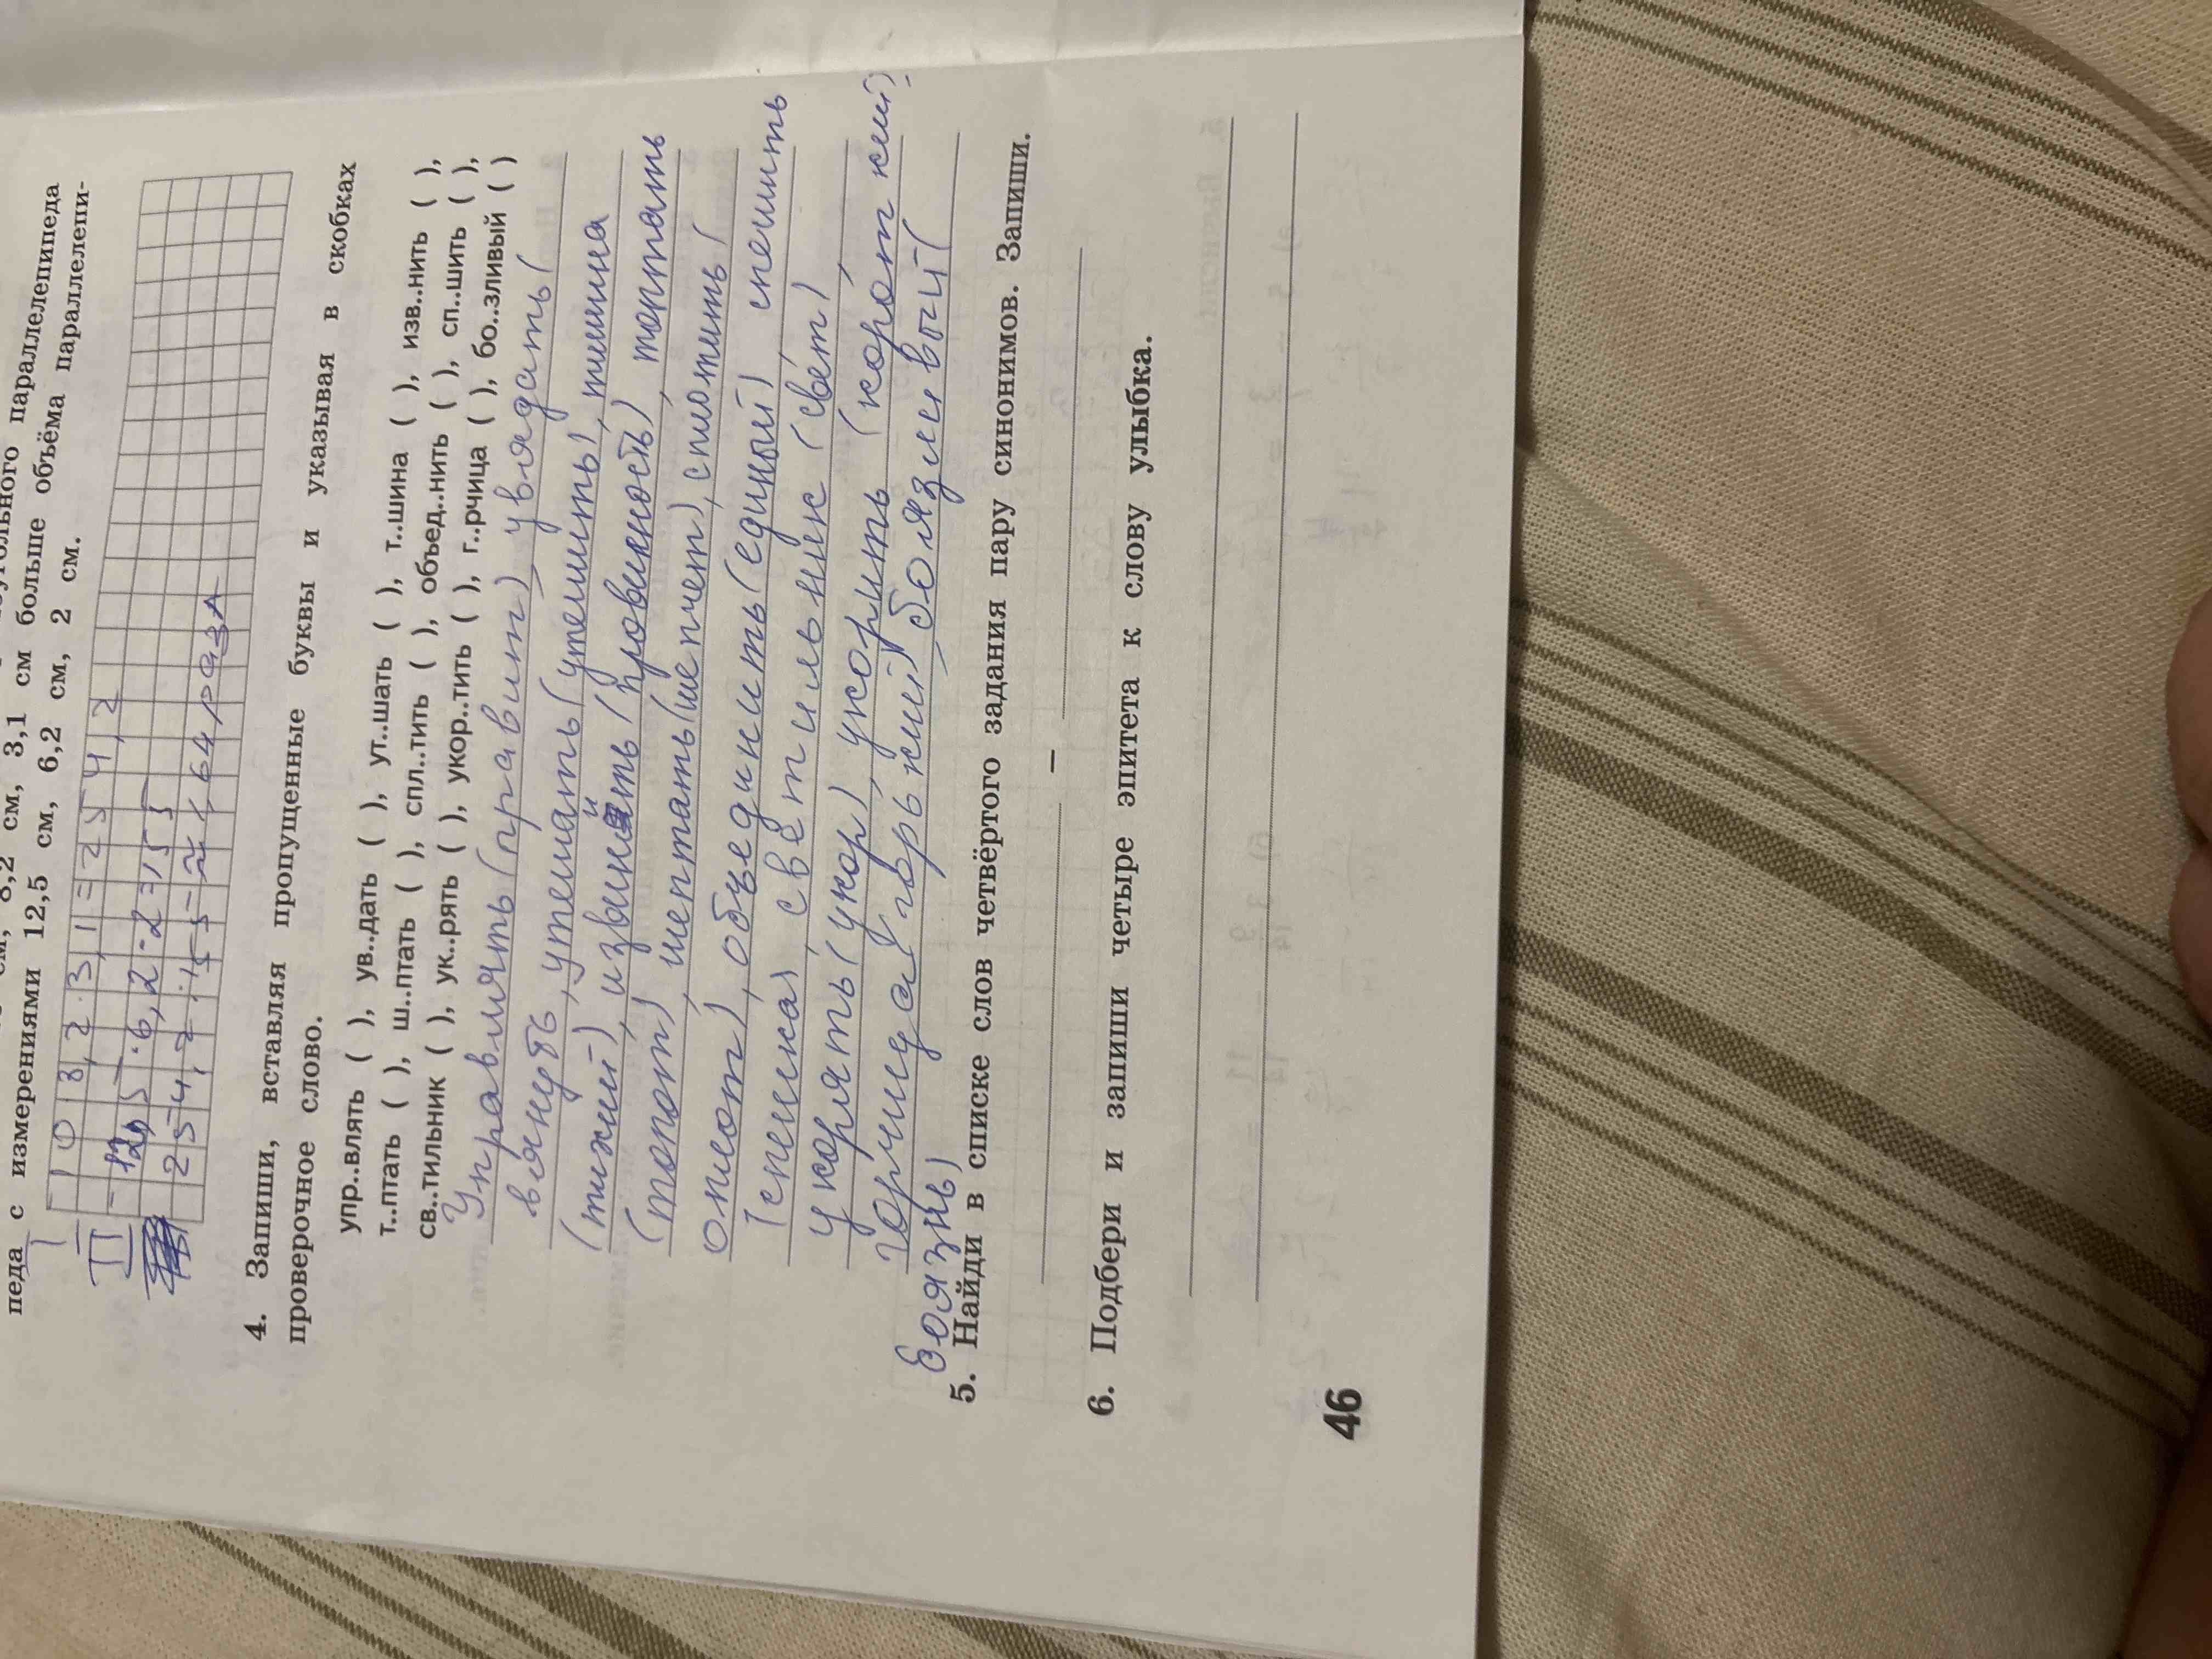 угольного параллелепипеда
см, 8,2 см, 3,1 см больше объёма параллелепи-
педа с измерениями 12,5 см, 6,2 см, 2 см.
I 10 · 8,2 · 3,1 = 254,2
II - 12,5 · 6,2 · 2 = 155
254,2 : 155 = 1,64 раза
4. Запиши, вставляя пропущенные буквы и указывая в скобках
проверочное слово.
упр..влять ( ), ув..дать ( ), ут..шать ( ), т..шина ( ), изв..нить ( ),
т..птать ( ), ш..птать ( ), спл..тить ( ), объед..нить ( ), сп..шить ( ),
св..тильник ( ), ук..рять ( ), укор..тить ( ), г..рчица ( ), бо..зливый ( )
Управлять (правит), увядать (
вянуть, утешать (утешить), тишина
(тихий), извинить (провинность), топтать
(топот), шептать (шепчет), сплотить (
оплот), объединить (единый), спешить
(спешка), светильник (свет),
укорять (укор), укоротить (короткий),
горчица (горький), боязливый (
боязнь)
5. Найди в списке слов четвёртого задания пару синонимов. Запиши.
–
6. Подбери и запиши четыре эпитета к слову улыбка.
46